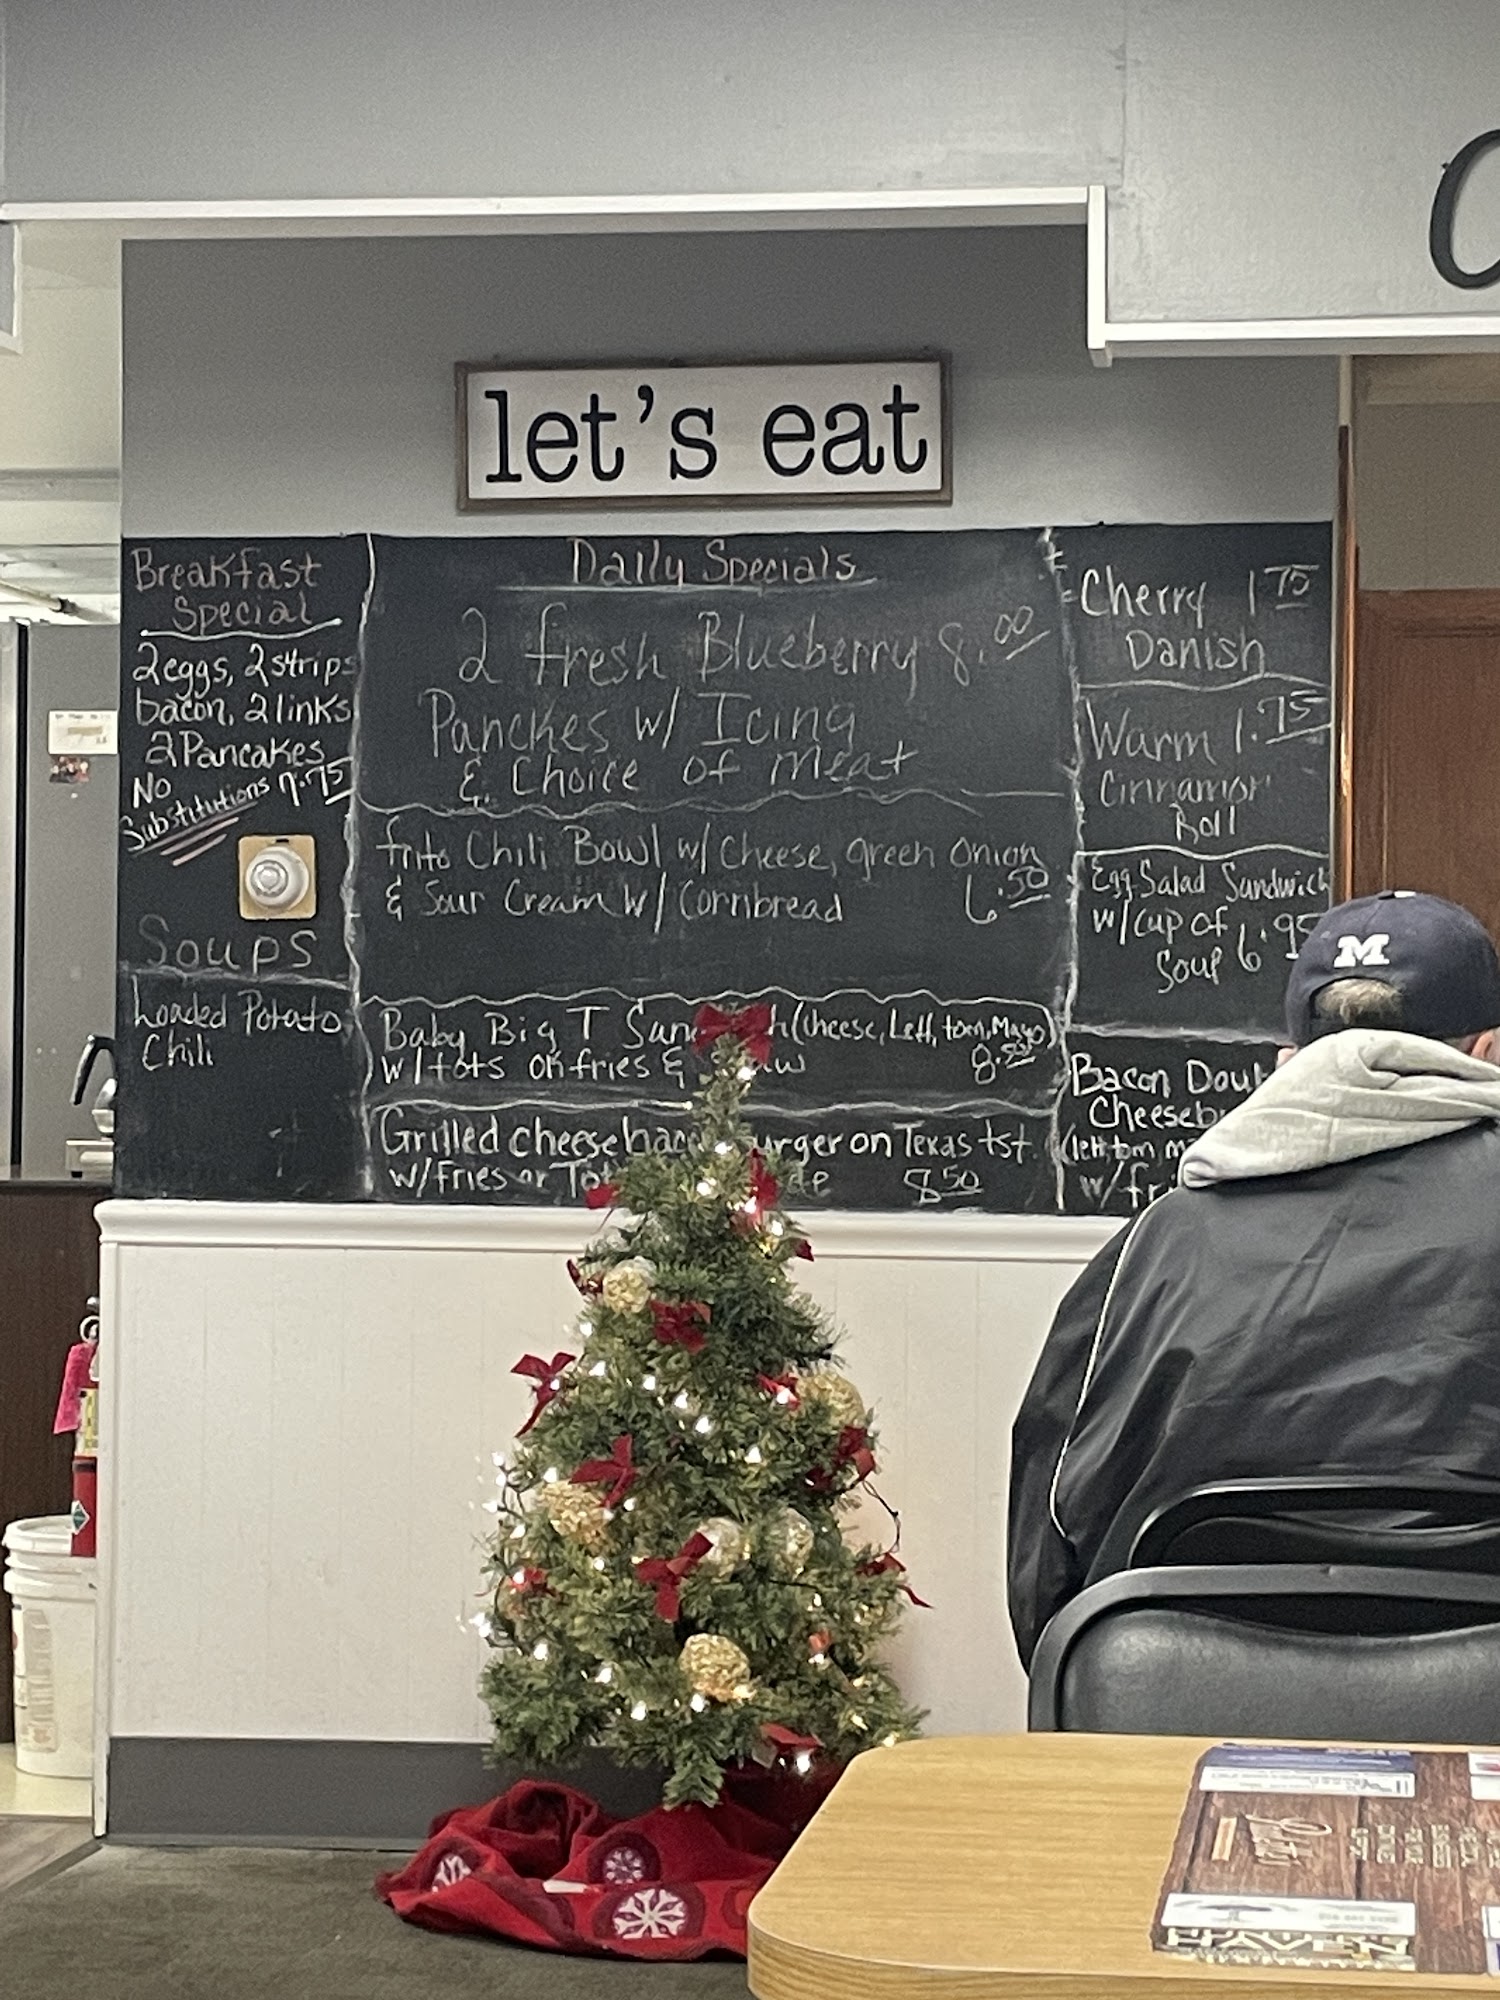 let's eat
Breakfast
Special
2 eggs, 2 strips
bacon, 2 links
2 Pancakes
No
Substitutions 7.75
Soups
Loaded Potato
Chili
Daily Specials
2 fresh Blueberry 8.00
Panckes w/ Icing
& Choice of meat
frito Chili Bowl w/ Cheese, green onion
& Sour Cream w/ Cornbread 6.50
Baby Big T (Cheese, Lett, tom, Mayo)
w/ tots or fries & 8.50
Grilled cheese on Texas tst.
w/ Fries or 8.50
Cherry 1.75
Danish
Warm 1.75
Cinnamon
Roll
Egg Salad Sandwich
w/ cup of 6.95
Soup
Bacon
(lett, tom,
w/
M
HAVEN